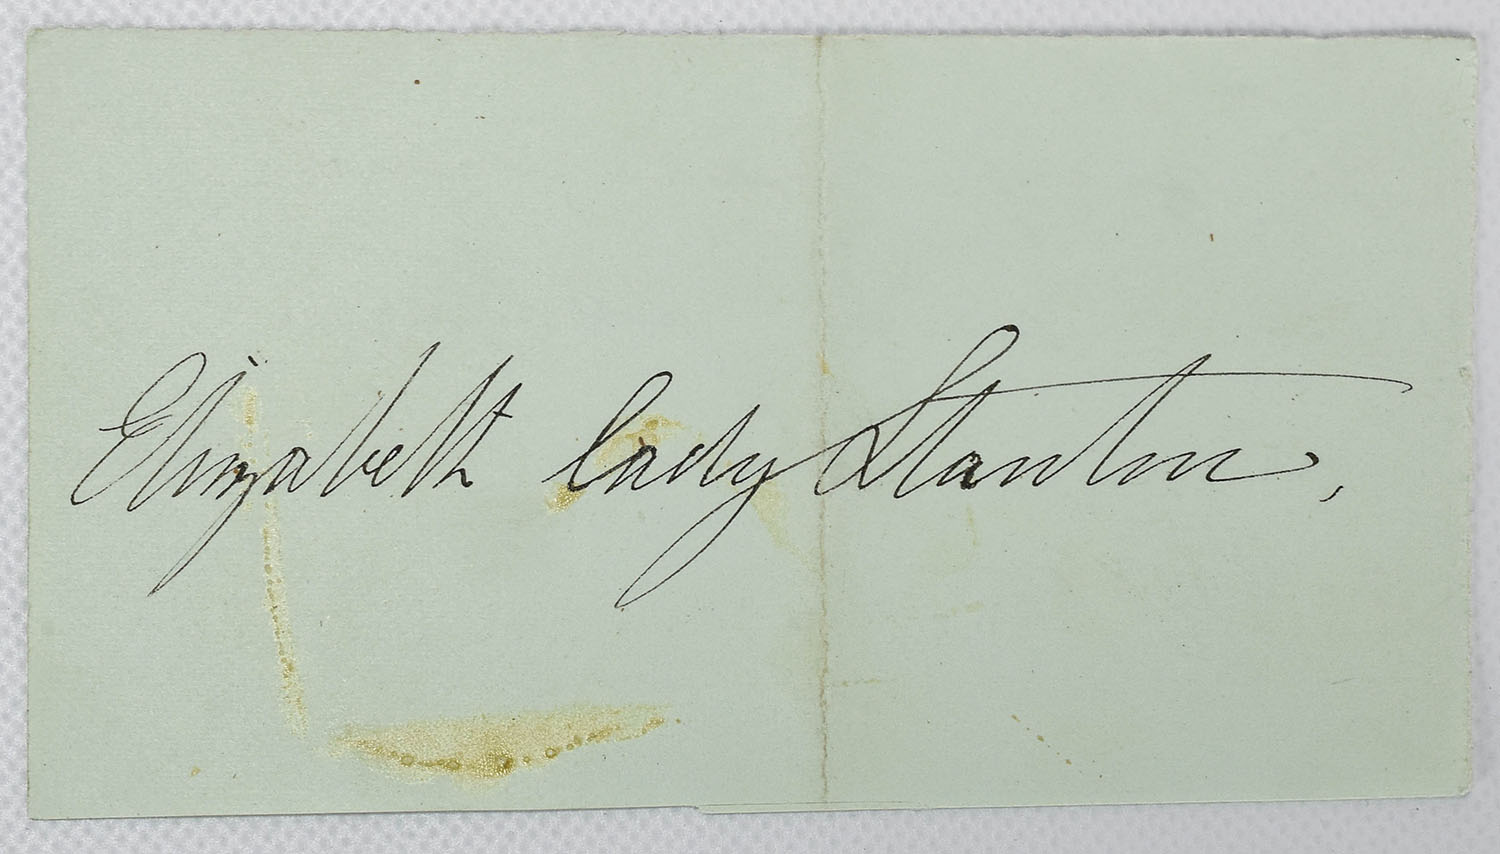 Elizabeth Cady Stanton,